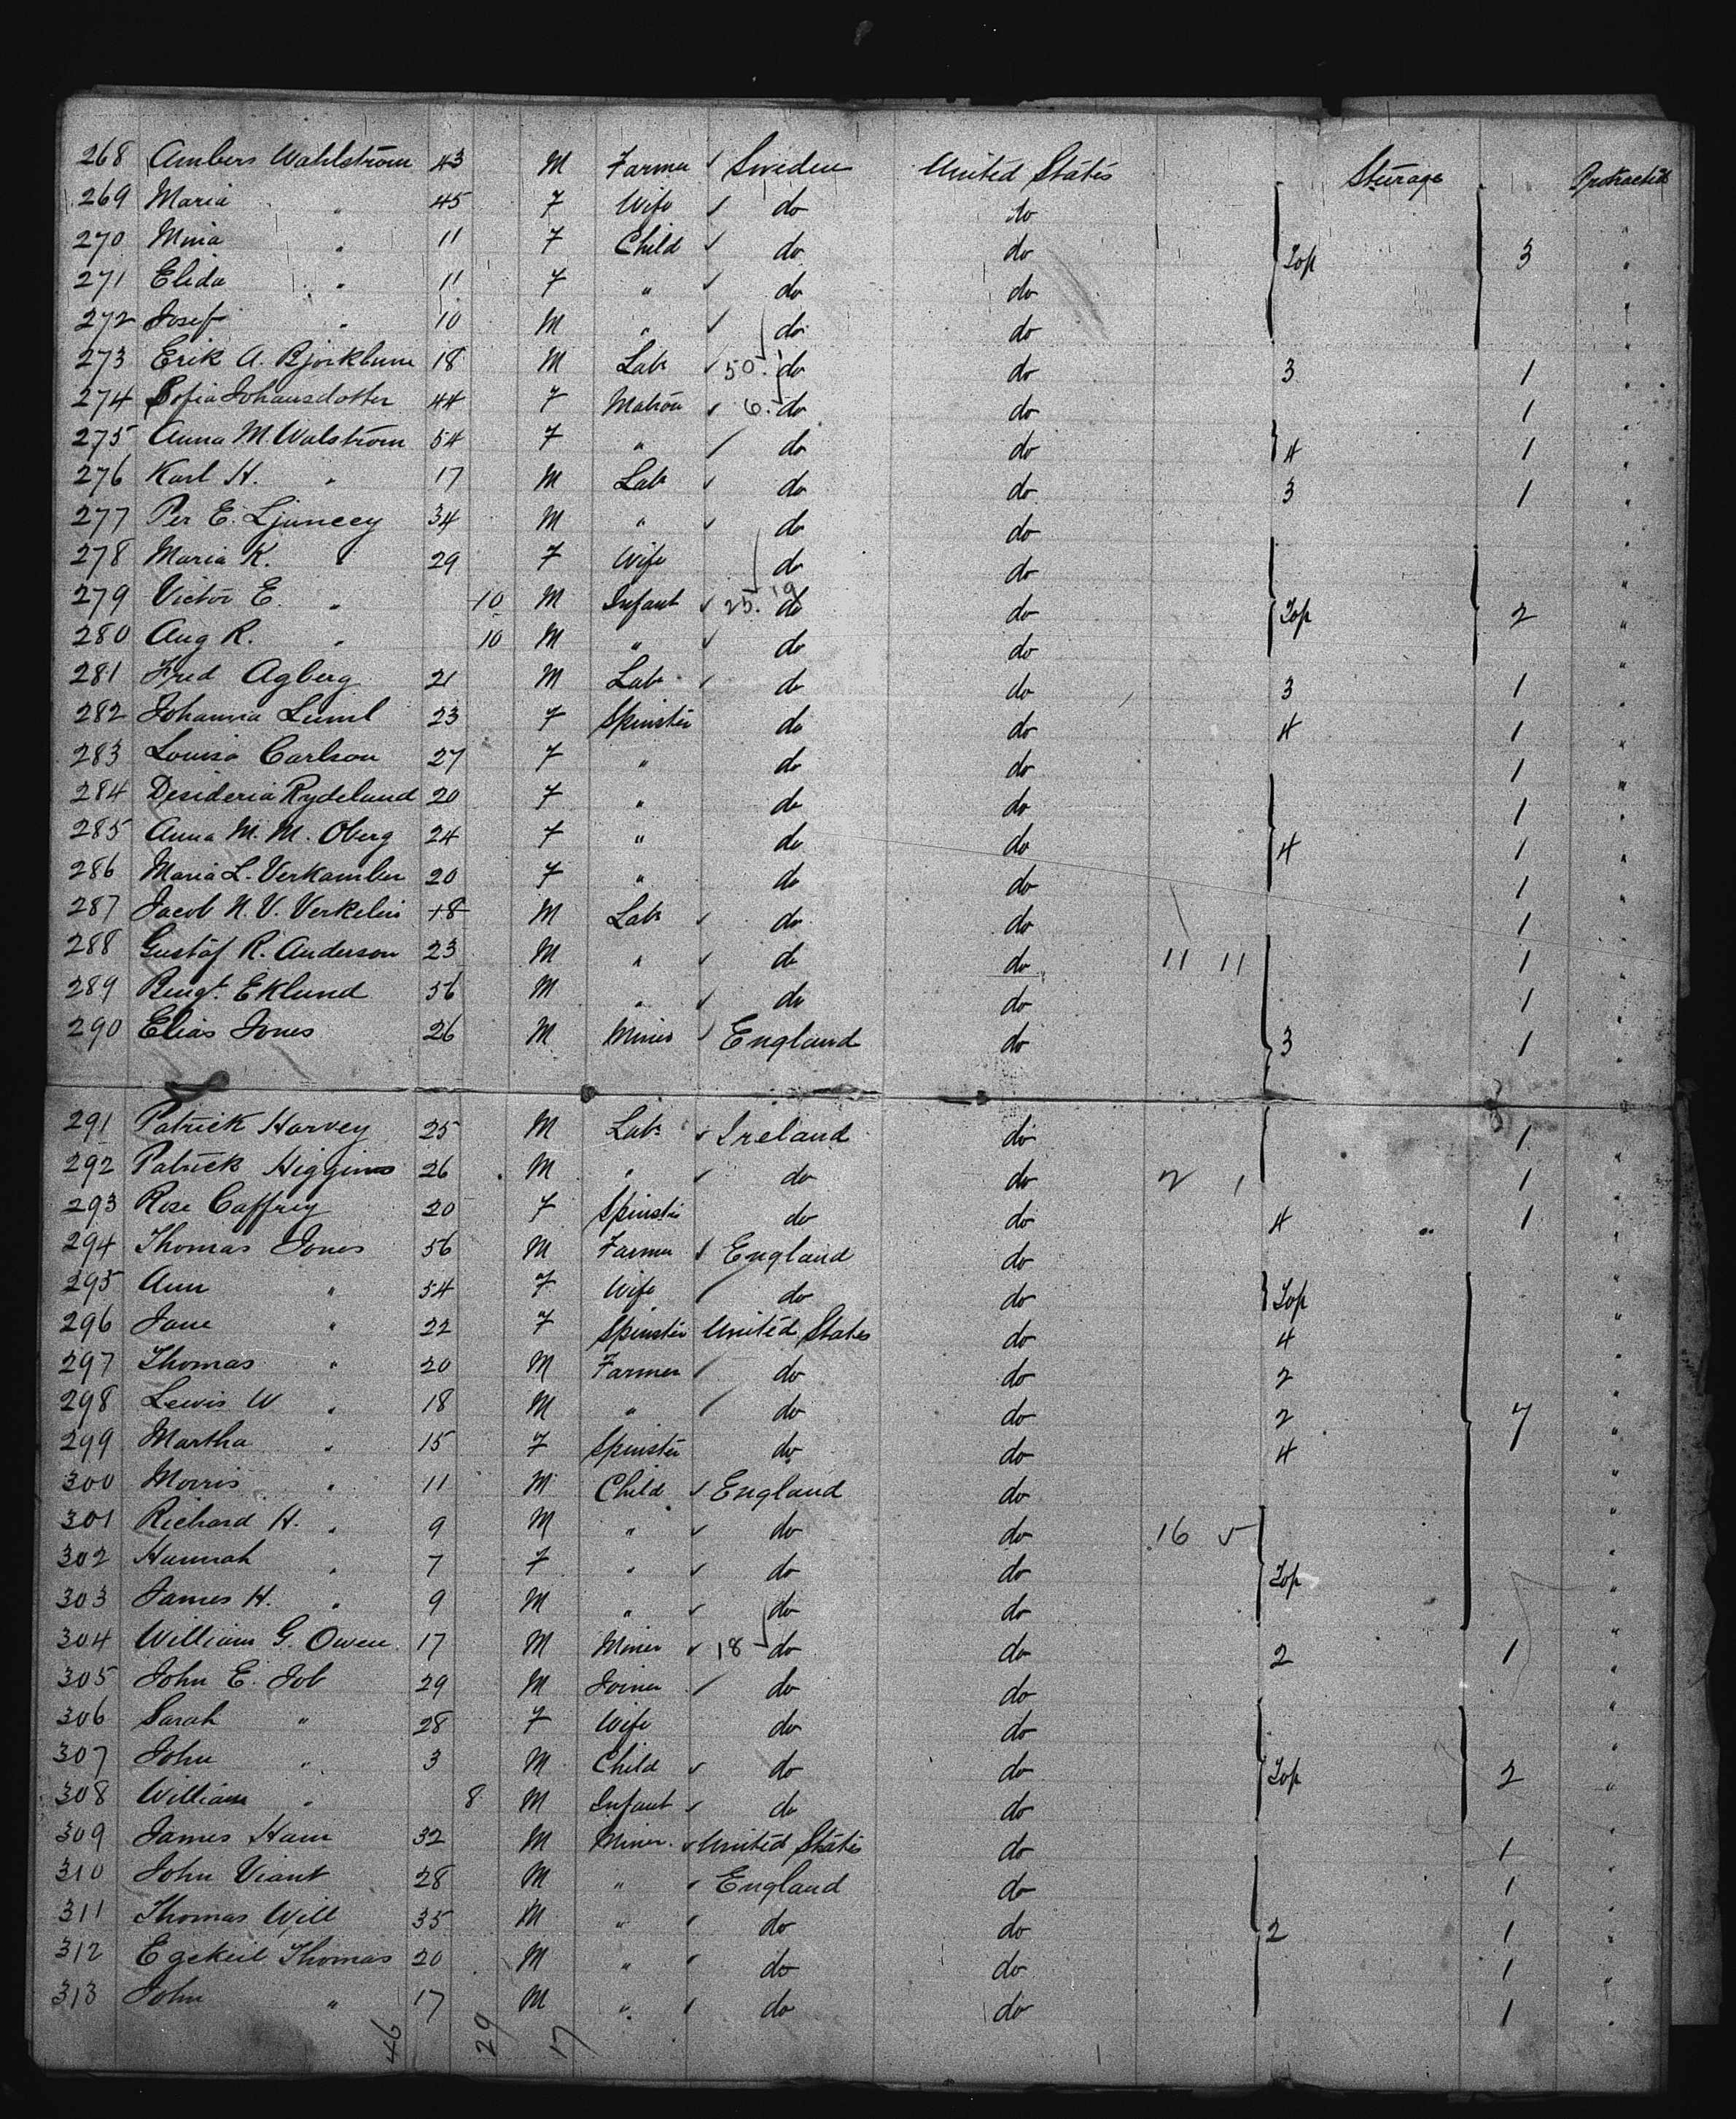 268 Ambers Wahlstrom 43 M Farmer ✓ Sweden United States Steerage Protracted
269 Maria " 45 F Wife ✓ do do "
270 Mina " 11 F Child ✓ do do Top 3 "
271 Elida " 11 F " ✓ do do "
272 Josef " 10 M " ✓ do do "
273 Erik A. Bjorkbum 18 M Labr ✓ 50. do do 3 1 "
274 Sofia Johansdotter 44 F Matron ✓ 6. do do 1 "
275 Anna M. Walstrom 54 F " / do do 4 1 "
276 Karl H. " 17 M Labr ✓ do do 3 1 "
277 Per E. Ljuncey 34 M " ✓ do do "
278 Maria K. " 29 F Wife do do "
279 Victor E. " 10 M Infant ✓ 25. 19 do do Top 2 "
280 Aug R. " 10 M " ✓ do do "
281 Fred Agberg 21 M Labr ✓ do do 3 1 "
282 Johanna Lund 23 F Spinster do do 4 1 "
283 Louisa Carlson 27 F " do do 1 "
284 Desideria Rydelund 20 F " do do 1 "
285 Anna M. M. Oberg 24 F " do do 4 1 "
286 Maria L. Verkamber 20 F " do do 1 "
287 Jacob N. V. Verkelin 18 M Labr ✓ do do 1 "
288 Gustaf R. Anderson 23 M " ✓ do do 11 11 1 "
289 Bengt Eklund 56 M " ✓ do do 1 "
290 Elias Jones 26 M Miner ✓ England do 3 1 "
291 Patrick Harvey 25 M Labr ✓ Ireland do 1 "
292 Patrick Higgins 26 M " ✓ do do 2 1 1 "
293 Rose Caffrey 20 F Spinster do do 4 " 1 "
294 Thomas Jones 56 M Farmer ✓ England do "
295 Ann " 54 F Wife / do do Top "
296 Jane " 22 F Spinster United States do 4 "
297 Thomas " 20 M Farmer / do do 2 "
298 Lewis W " 18 M " / do do 2 7 "
299 Martha " 15 F Spinster do do 4 "
300 Morris " 11 M Child ✓ England do "
301 Richard H. " 9 M " ✓ do do 16 5 "
302 Hannah " 7 F " ✓ do do Top "
303 James H. " 9 M " ✓ do do "
304 William G. Owen 17 M Miner ✓ 18 do do 2 1 "
305 John E. Job 29 M Joiner / do do "
306 Sarah " 28 F Wife do do "
307 John " 3 M Child ✓ do do Top 2 "
308 William " 8 M Infant ✓ do do "
309 James Ham 32 M Miner ✓ United States do 1 "
310 John Viant 28 M " ✓ England do 1 "
311 Thomas Will 35 M " ✓ do do 2 1 "
312 Egekeil Thomas 20 M " ✓ do do 1 "
313 John " 17 M " ✓ do do 1 "
46 29 17